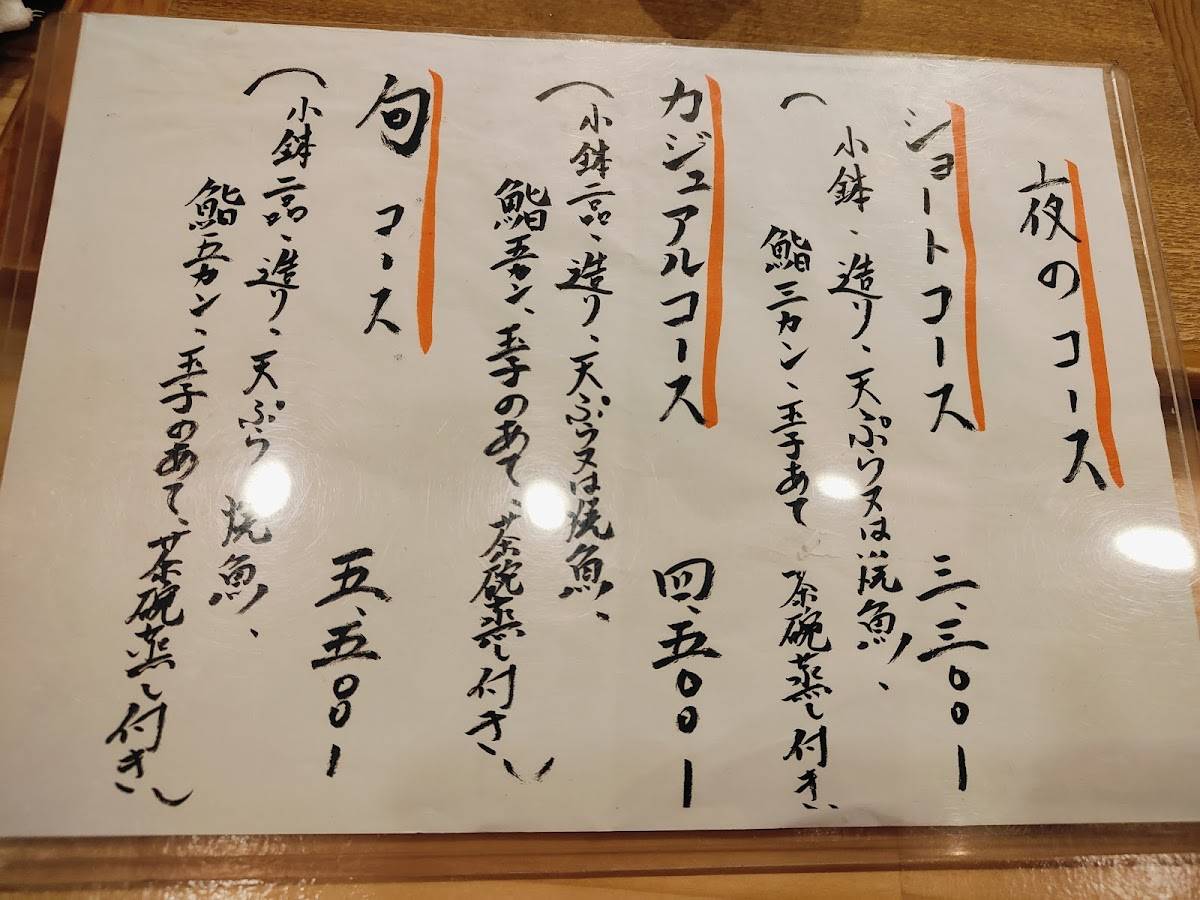 夜のコース
ショートコース 三、三〇〇ー
(小鉢、造り、天ぷら又は焼魚、
鮨三カン、玉子あて 茶碗蒸し付き)
カジュアルコース 四、五〇〇ー
(小鉢二品、造り、天ぷら又は焼魚、
鮨五カン、玉子のあて、茶碗蒸し付き)
旬コース 五、五〇〇ー
(小鉢二品、造り、天ぷら 焼魚、
鮨五カン、玉子のあて、茶碗蒸し付き)